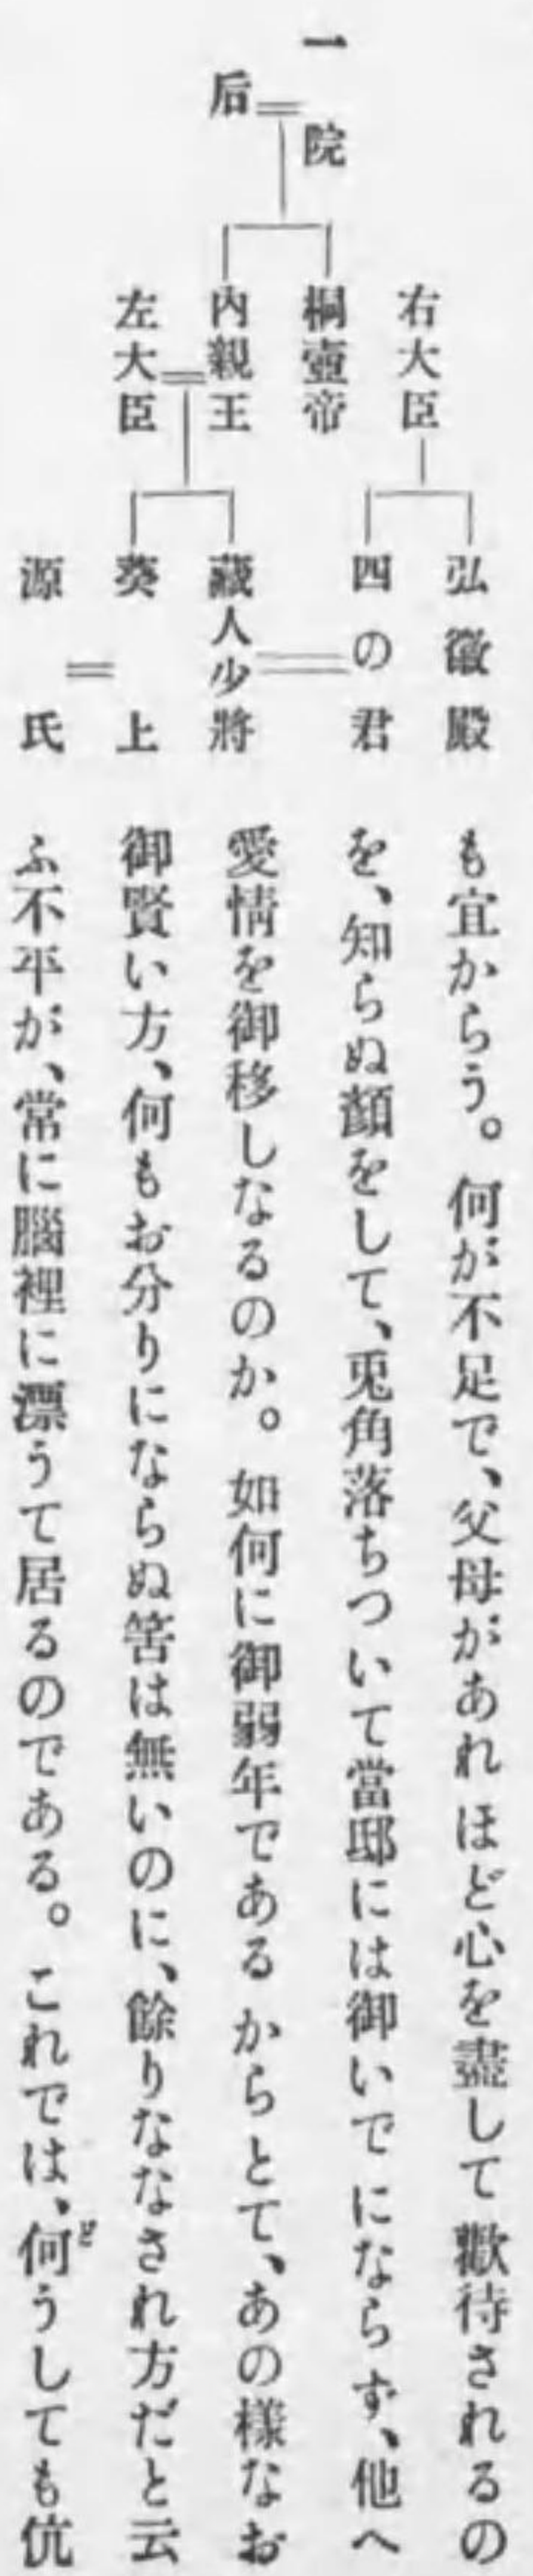 一院
后
右大臣
桐壺帝
內親王
左大臣
弘徽殿
四の君
藏人少將
葵上
源氏
も宜からう。何が不足で、父母があれほど心を盡して歡待されるの
を、知らぬ顏をして、兎角落ちついて當邸には御いでにならず、他へ
愛情を御移しなるのか。如何に御弱年であるからとて、あの樣なお
御賢い方、何もお分りにならぬ筈は無いのに、餘りななされ方だと云
ふ不平が、常に腦裡に漂うて居るのである。これでは、何うしても伉
ど